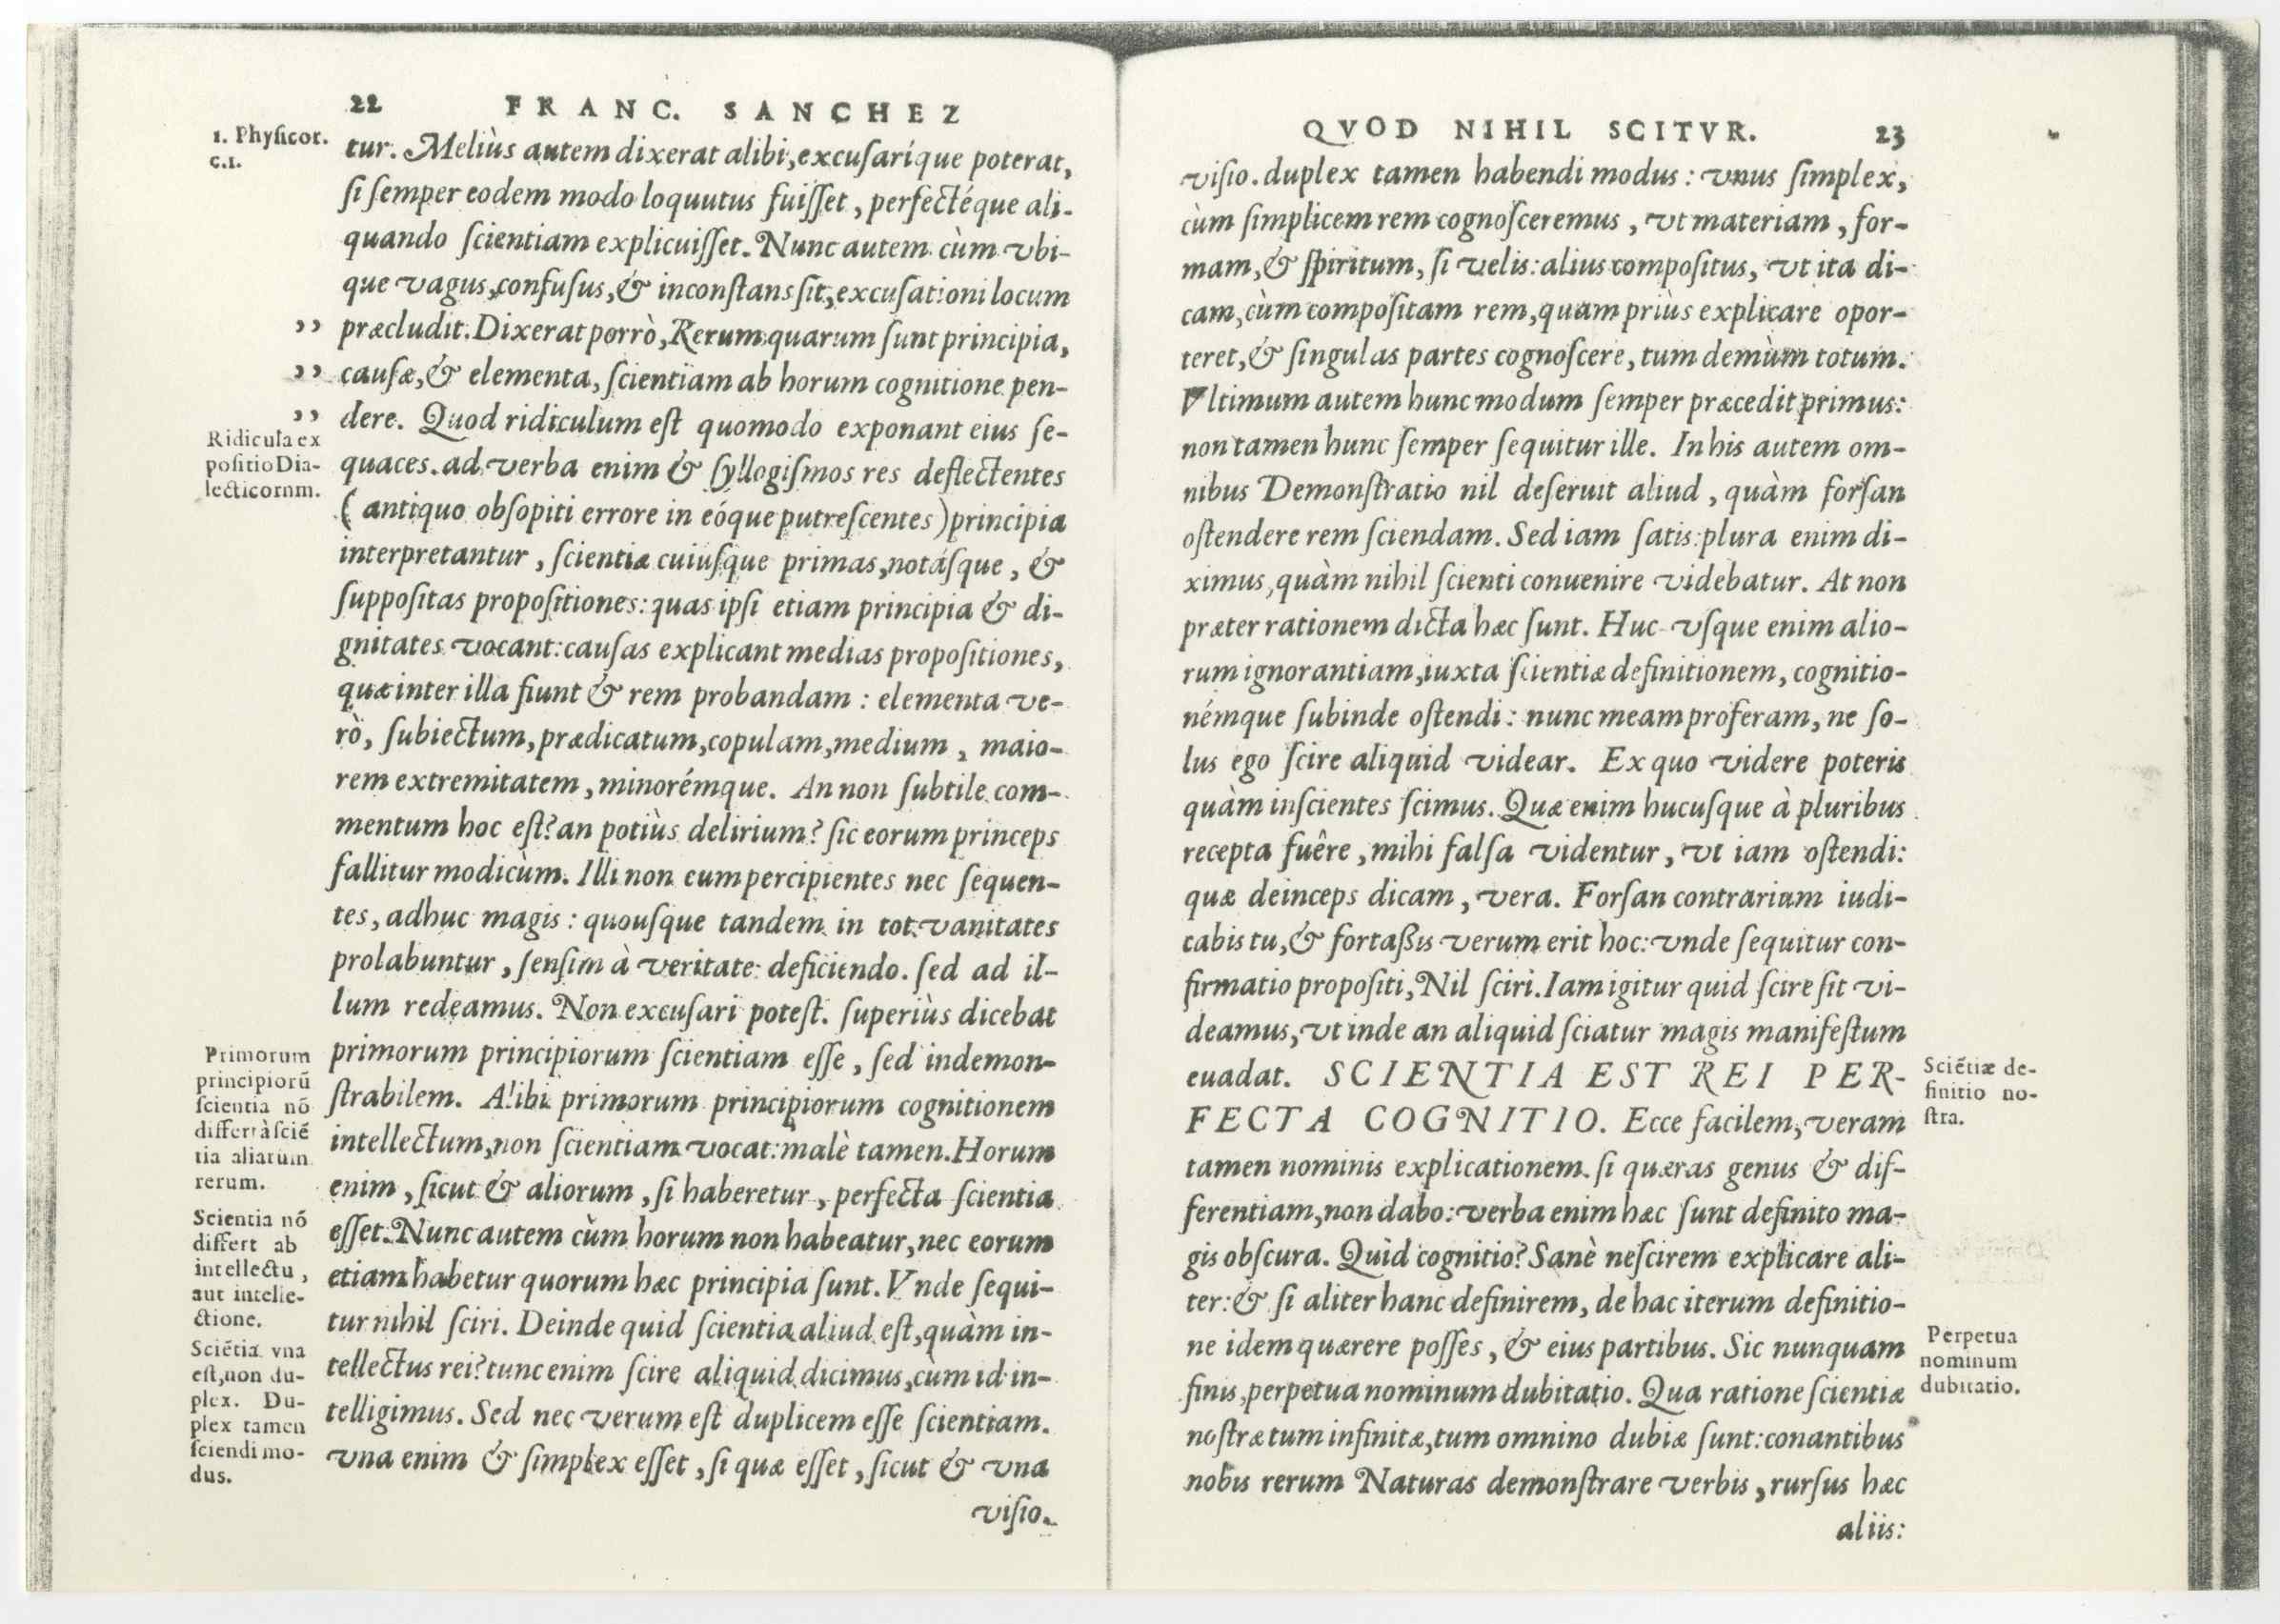 22 FRANC. SANCHEZ
1. Physicor.
c.1.
tur. Meliùs autem dixerat alibi, excusaríque poterat,
si semper eodem modo loquutus fuisset, perfectéque ali-
quando scientiam explicuisset. Nunc autem cùm vbi-
que vagus, confusus, & inconstans sit, excusationi locum
,, præcludit. Dixerat porrò, Rerum quarum sunt principia,
,, causæ, & elementa, scientiam ab horum cognitione pen-
,, dere. Quod ridiculum est quomodo exponant eius se-
Ridicula ex
positio Dia-
lecticorum.
quaces. ad verba enim & syllogismos res deflectentes
( antiquo obsopiti errore in eóque putrescentes) principia
interpretantur, scientiæ cuiusque primas, notásque, &
suppositas propositiones: quas ipsi etiam principia & di-
gnitates vocant: causas explicant medias propositiones,
quæ inter illa fiunt & rem probandam: elementa ve-
rò, subiectum, prædicatum, copulam, medium, maio-
rem extremitatem, minorémque. An non subtile com-
mentum hoc est? an potiùs delirium? sic eorum princeps
fallitur modicùm. Illi non eum percipientes nec sequen-
tes, adhuc magis: quousque tandem in tot vanitates
prolabuntur, sensim à veritate deficiendo. sed ad il-
lum redeamus. Non excusari potest. superiùs dicebat
primorum principiorum scientiam esse, sed indemon-
strabilem. Alibi primorum principiorum cognitionem
intellectum, non scientiam vocat: malè tamen. Horum
enim, sicut & aliorum, si haberetur, perfecta scientia
esset. Nunc autem cùm horum non habeatur, nec eorum
etiam habetur quorum hæc principia sunt. Vnde sequi-
tur nihil sciri. Deinde quid scientia aliud est, quàm in-
tellectus rei? tunc enim scire aliquid dicimus, cùm id in-
telligimus. Sed nec verum est duplicem esse scientiam.
vna enim & simplex esset, si quæ esset, sicut & vna
visio.
Primorum
principiorũ
scientia nõ
differt à sciẽ
tia aliarum
rerum.
Scientia nõ
differt ab
intellectu,
aut intelle-
ctione.
Sciẽtia vna
est, non du-
plex. Du-
plex tamen
sciendi mo-
dus.
QVOD NIHIL SCITVR. 23
visio. duplex tamen habendi modus: vnus simplex,
cùm simplicem rem cognosceremus, vt materiam, for-
mam, & spiritum, si velis: alius compositus, vt ita di-
cam, cùm compositam rem, quam priùs explicare opor-
teret, & singulas partes cognoscere, tum demùm totum.
Vltimum autem hunc modum semper præcedit primus:
non tamen hunc semper sequitur ille. In his autem om-
nibus Demonstratio nil deseruit aliud, quàm forsan
ostendere rem sciendam. Sed iam satis: plura enim di-
ximus, quàm nihil scienti conuenire videbatur. At non
præter rationem dicta hæc sunt. Huc vsque enim alio-
rum ignorantiam, iuxta scientiæ definitionem, cognitio-
némque subinde ostendi: nunc meam proferam, ne so-
lus ego scire aliquid videar. Ex quo videre poteris
quàm inscientes scimus. Quæ enim hucusque à pluribus
recepta fuêre, mihi falsa videntur, vt iam ostendi:
quæ deinceps dicam, vera. Forsan contrarium iudi-
cabis tu, & fortaßis verum erit hoc: vnde sequitur con-
firmatio propositi, Nil sciri. Iam igitur quid scire sit vi-
deamus, vt inde an aliquid sciatur magis manifestum
euadat. SCIENTIA EST REI PER-
FECTA COGNITIO. Ecce facilem, veram
tamen nominis explicationem. si quæras genus & dif-
ferentiam, non dabo: verba enim hæc sunt definito ma-
gis obscura. Quid cognitio? Sanè nescirem explicare ali-
ter: & si aliter hanc definirem, de hac iterum definitio-
ne idem quærere posses, & eius partibus. Sic nunquam
finis, perpetua nominum dubitatio. Qua ratione scientiæ
nostræ tum infinitæ, tum omnino dubiæ sunt: conantibus
nobis rerum Naturas demonstrare verbis, rursus hæc
aliis:
Sciẽtiæ de-
finitio no-
stra.
Perpetua
nominum
dubitatio.